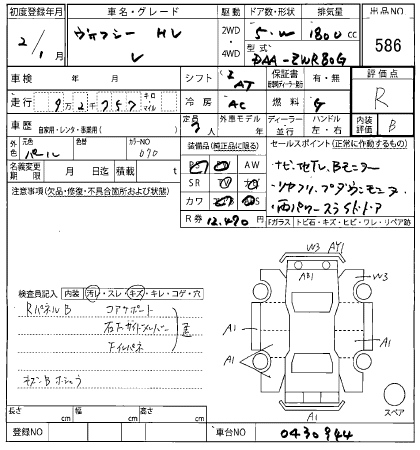 初度登録年月 車名・グレード 駆動 ドア数・形状 排気量 出品NO
2/1月 ヴォクシー HV V 2WD ・ 4WD 5・W 1800 cc 586
型式 DAA-ZWR80G
車検 年 月 シフト AT 保証書 有・無 評価点
走行 9万2千757 キロ マイル 冷房 AC 燃料 G R
車歴 自家用・レンタ・事業用( ) 定員 7人 外車モデル 年 ディーラー 並行 ハンドル 左・右 内装 B
外色 元色 パール 色替 カラーNO 070 装備品(純正品に限る) セールスポイント(正常に作動するもの)
名義変更期限 月 日迄 積載 t AW
SR
カワ
ナビ、地デジ、Bモニター
両パワースライドドア
注意事項(欠品・修復・不具合箇所および状態)
R券 12,470円 Fガラス トビ石・キズ・ヒビ・ワレ・リペア跡
検査員記入 内装 汚レ・スレ・キズ・キレ・コゲ・穴
RパネルB コアサポート
石下サイドメンバー
下イルパネ
W3 AY1
AB1 W3
A1 A1
A1
A1
スペア
長さ cm 幅 cm 高さ cm
登録NO 車台NO 0430944